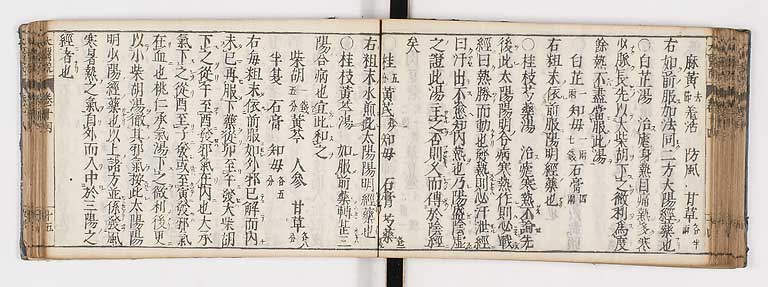 麻黄 羌活 防風 甘草各半両
右如前服加法同二方大陽經藥也
〇白芷湯 治瘧身熱目痛熱多寒
少脉長先以大柴胡下之微利爲度
餘熱不盡當服此湯
白芷一両 知母一両七錢 石膏四両
右粗末依前服陽明經藥也
〇桂枝芍藥湯 治瘧寒熱不論先
後此太陽陽明合病寒熱作則必戰
經曰熱勝而動也發熱則必汗泄經
曰汗出不愈知内熱也乃陽盛陰虚
之證此湯主之否則久而傳於陰經
矣
桂五分 黄芪 知母 石膏 芍藥
右粗末水煎此太陽陽明經藥也
〇桂枝黄芩湯 如服前藥轉甚三
陽合病也宜此和之
柴胡 黄芩 人參 甘草
半夏 石膏 知母各五分
右毎粗末依前服如外邪已解而内
未已再服下藥從卯至午發大柴胡
下之從午至酉發邪氣在内也大承
氣下之從酉至子發或至寅發邪氣
在血也桃仁承氣湯下之微利後更
以小柴胡湯徹其邪氣按此太陽陽
明少陽經藥也以上諸方並係發風
寒暑熱之氣自外而入中於三陽之
經者也